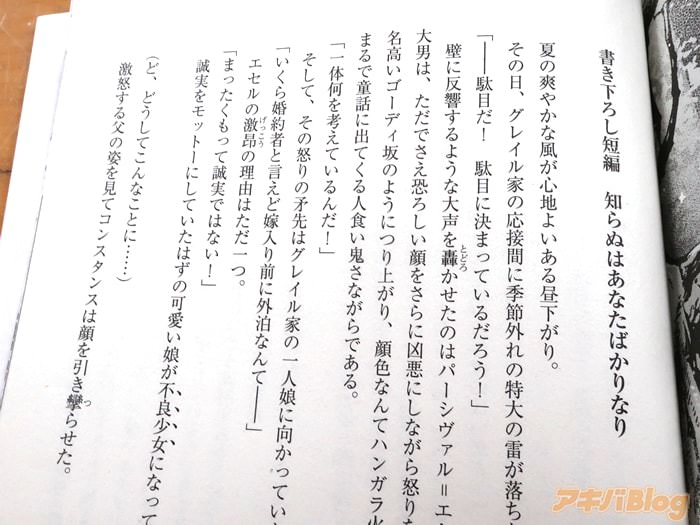 書き下ろし短編　知らぬはあなたばかりなり
夏の爽やかな風が心地よいある昼下がり。
その日、グレイル家の応接間に季節外れの特大の雷が落ち
「――駄目だ！　駄目に決まっているだろう！」
壁に反響するような大声を轟かせたのはパーシヴァル＝エ
とどろ
大男は、ただでさえ恐ろしい顔をさらに凶悪にしながら怒り
名高いゴーディ坂のようにつり上がり、顔色なんてハンガラ
まるで童話に出てくる人食い鬼さながらである。
「一体何を考えているんだ！」
そして、その怒りの矛先はグレイル家の一人娘に向かってい
「いくら婚約者と言えど嫁入り前に外泊なんて――」
エセルの激昂の理由はただ一つ。
げっこう
「まったくもって誠実ではない！」
誠実をモットーにしていたはずの可愛い娘が不良少女になって
（ど、どうしてこんなことに……）
激怒する父の姿を見てコンスタンスは顔を引き攣らせた。
つ
アキバBlog